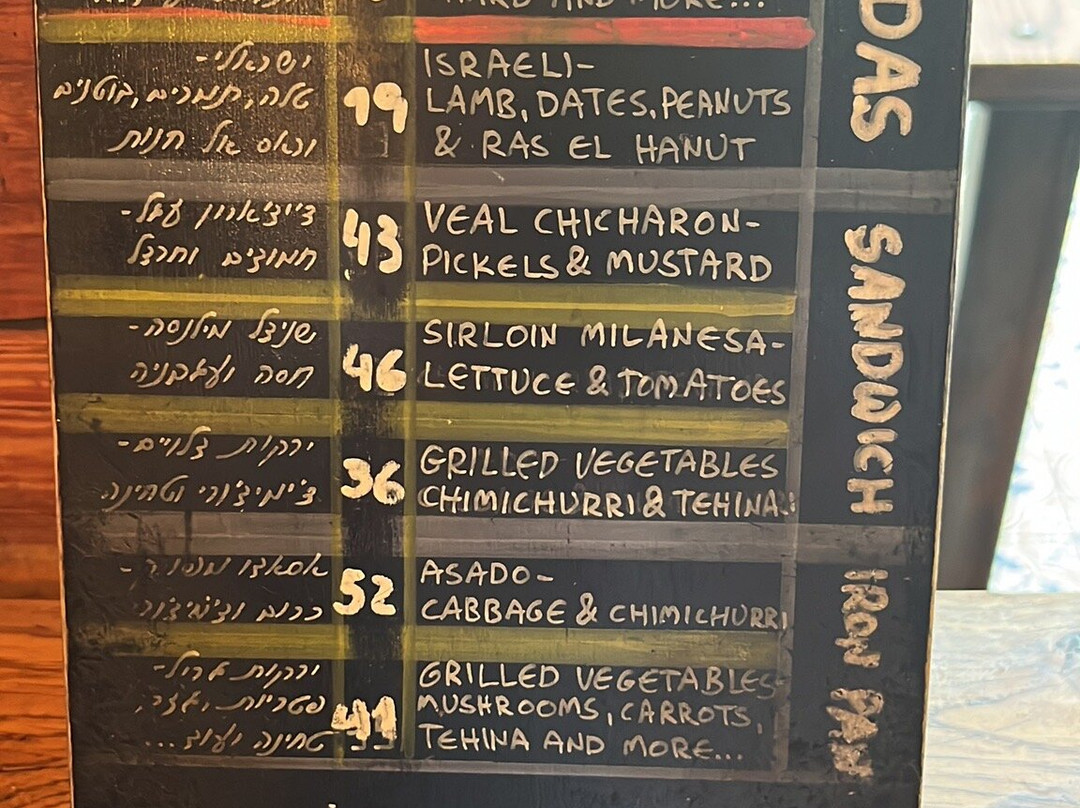 HARD AND MORE...
ישראלי-
טלה, תמרים, בוטנים
וראס אל חנות
19
ISRAELI-
LAMB, DATES, PEANUTS
& RAS EL HANUT
DAS
צ'יצ'ארון עגל-
חמוצים וחרדל
43
VEAL CHICHARON-
PICKELS & MUSTARD
שניצל מילנסה-
חסה ועגבניה
46
SIRLOIN MILANESA-
LETTUCE & TOMATOES
ירקות צלויים-
צ'ימיצ'ורי וטחינה
36
GRILLED VEGETABLES
CHIMICHURRI & TEHINA
SANDWICH
אסאדו
כרוב וצ'ימיצ'ורי
52
ASADO-
CABBAGE & CHIMICHURRI
ירקות גריל-
פטריות, גזר,
טחינה ועוד...
41
GRILLED VEGETABLES-
MUSHROOMS, CARROTS,
TEHINA AND MORE...
IRON PAN